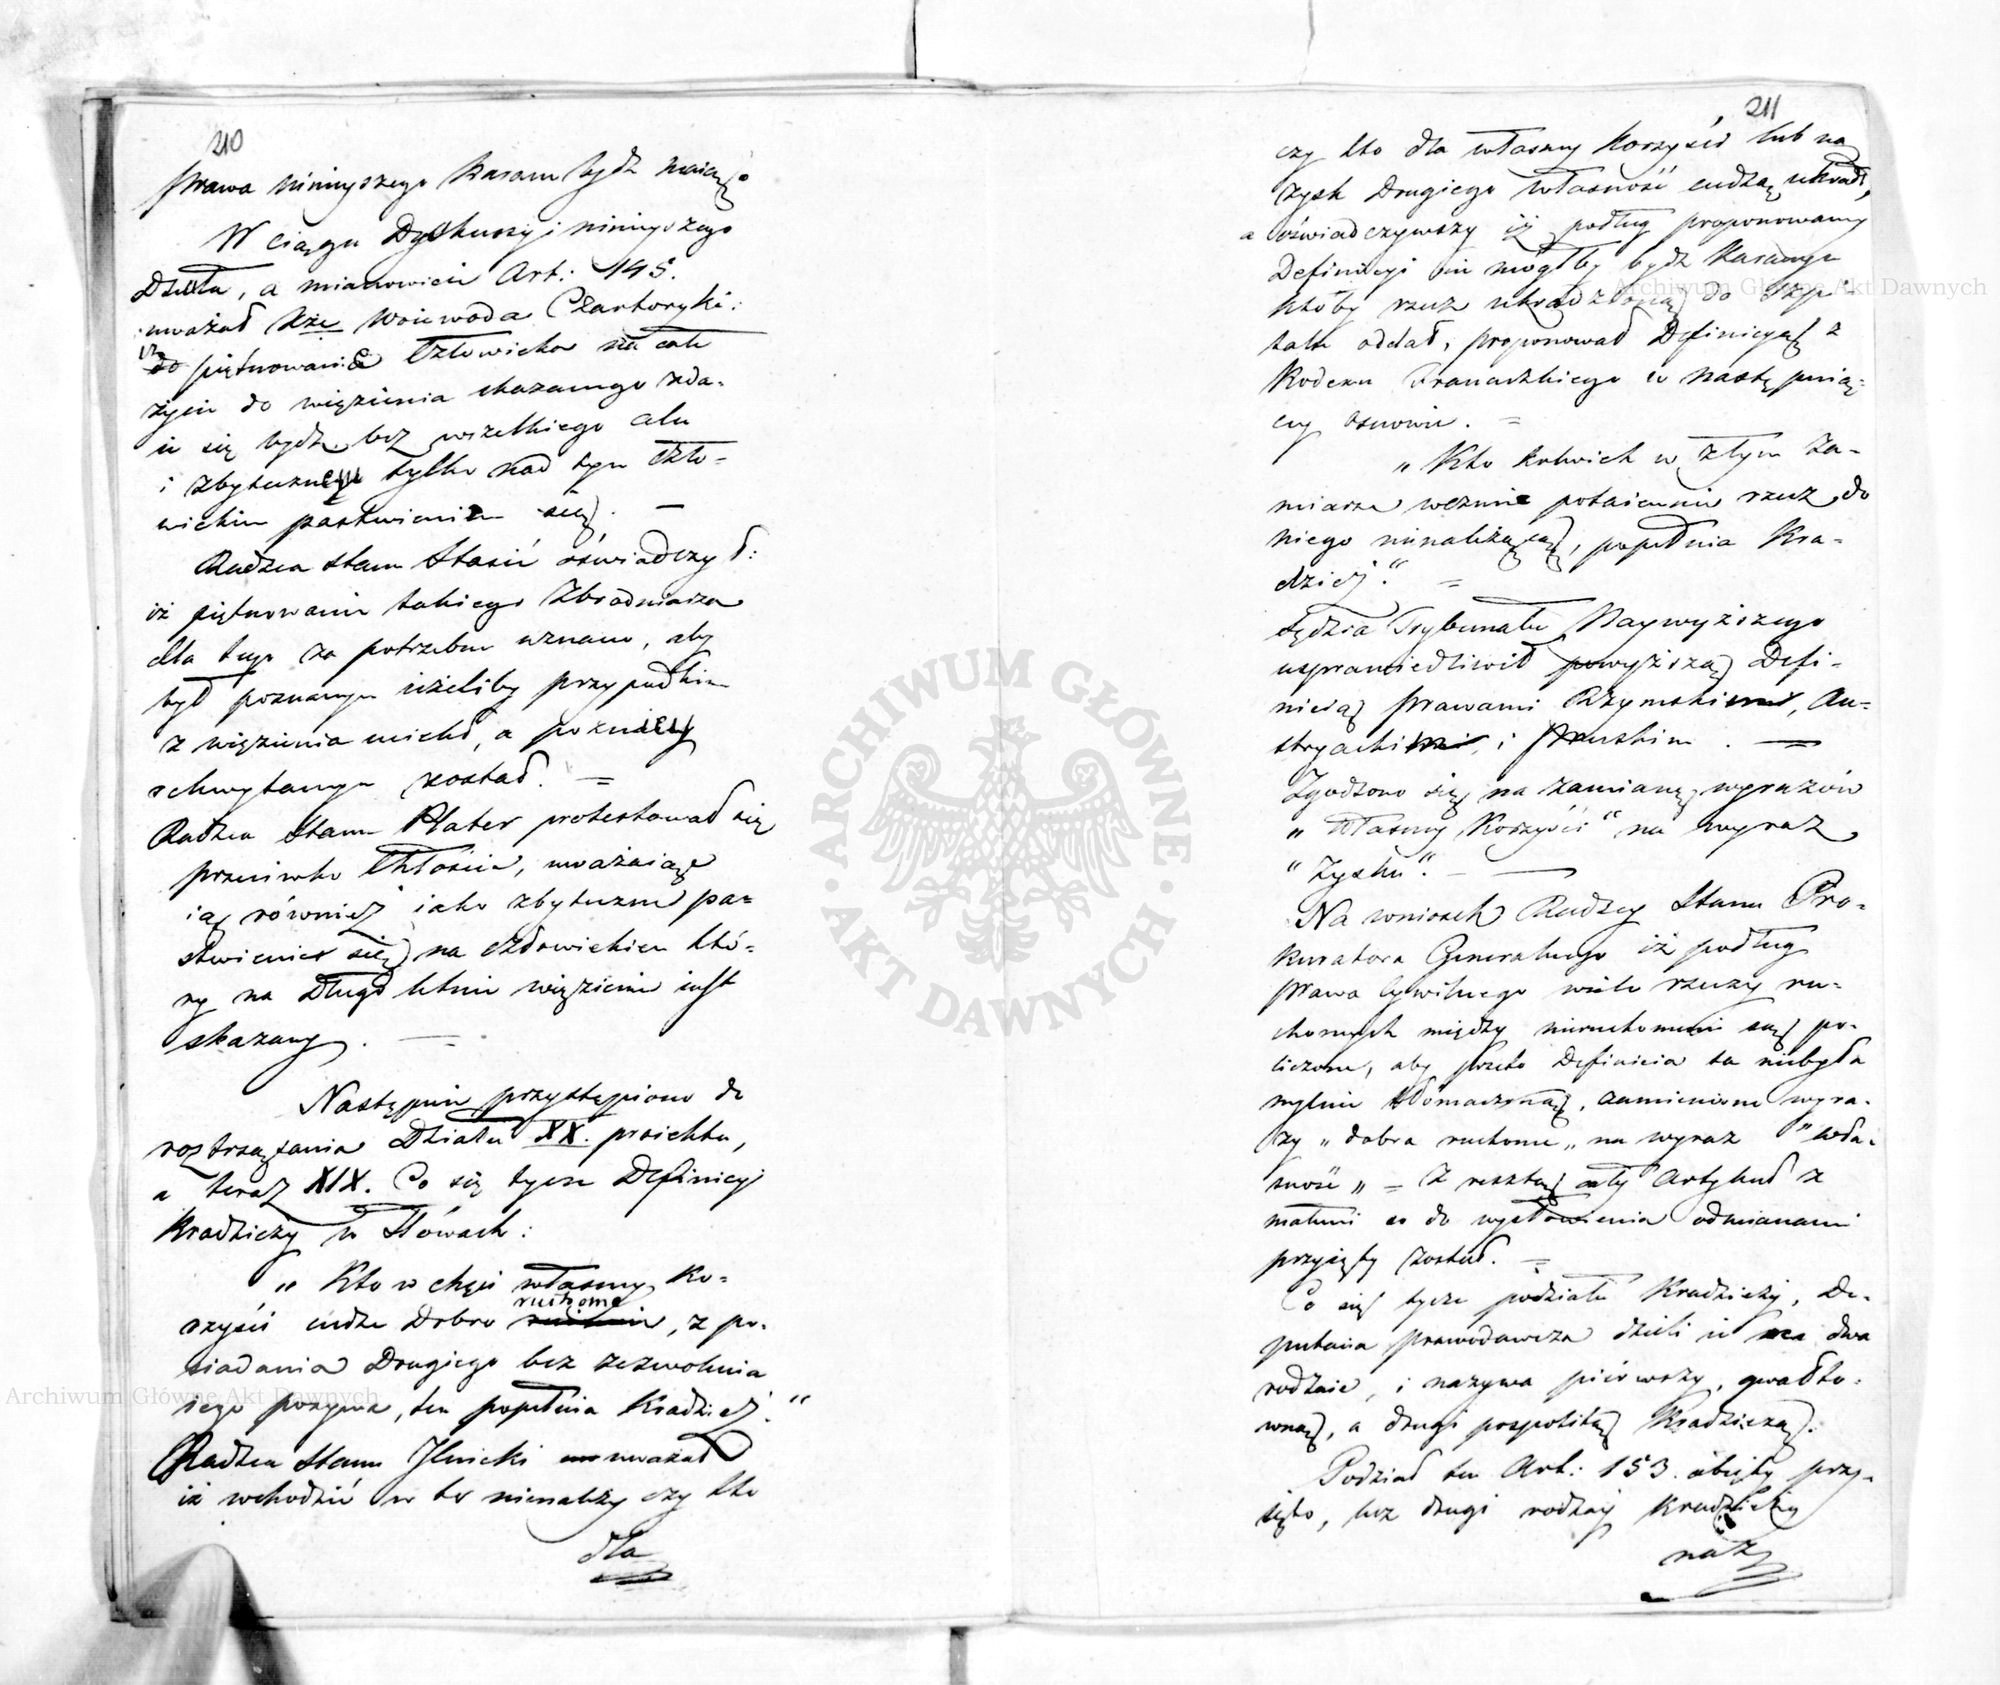 210
prawa ninieyszego karani bydź maią.
W ciągu Dyskussyi ninieyszego
Działu, a mianowicie Art: 145.
uważał Xże Woiewoda Czartoryski:
iż piętnowanie Człowieka na całe
życie do więzienia skazanego zda-
ie się bydź bez wszelkiego celu
i zbyteczném tylko nad tym czło-
wiekiem pastwieniem się. —
Radzca Stanu Stasic oświadczył:
iż piętnowanie takiego Zbrodniarza
dla tego za potrzebne uznano, aby
był poznanym ieżeliby przypadkiem
z więzienia uciekł, a pozniey
schwytanym został. =
Radzca Stanu Plater protestował się
przeciwko Chłoście, uważaiąc
ią również iako zbyteczne pa-
stwienie się na człowiekiem któ-
ry na długo letnie więzienie iest
skazany. —
Następnie przystąpiono do
roztrząsania Działu XX. proiektu,
a teraz XIX. Co się tycze Definicyi
Kradzieży w Słowach:
„Kto w chęci własney ko-
rzyści cudze Dobro ruchome, z po-
siadania Drugiego bez zezwolenia
iego pozywa, ten popełnia Kradzież."
Radzca Stanu Jlinicki uważał
iż wchodzić w to nienależy czy kto
dla
211
czy kto dla własney korzyści lub na
zysk Drugiego własność cudzą ukradł,
a oświadczywszy iż podług proponowaney
Definicyi nie mógłby bydź karanym
któby rzecz ukradzioną do Szpi-
tala oddał, proponował Definicyą z
Kodexu Francuzkiego w następuią-
cey osnowie. =
„Kto kolwiek w złym za-
miarze weźmie potaiemnie rzecz do
niego nienależącą, popełnia Kra-
dzież." =
Sędzia Trybunału Naywyższego
usprawiedliwił powyższą Defi-
nicią prawami Rzymskim, Au-
stryackim, i Pruskim. —
Zgodzono się na zamianę wyrazów
„Własney Korzyści" na wyraz
"Zysku". —
Na wniosek Radzcy Stanu Pro-
kuratora Generalnego iż podług
prawa Cywilnego wiele rzeczy ru-
chomych między nieruchomemi są po-
liczone, aby przeto Definicia ta niebyła
mylnie tłomaczoną, zamieniono wyra-
zy „dobra ruchome„ na wyraz "wła-
sność„ = Z resztą cały Artykuł z
małemi co do wysłowienia odmianami
przyięty został. =
Co się tycze podziału Kradzieży, De-
putacia prawodawcza dzieli ie na dwa
rodzaie, i nazywa pierwszy, gwałto-
wną, a drugi pospolitą Kradzieżą.
Podział ten Art: 153. obięty przy-
ięto, lecz drugi rodzay kradzieży
naz